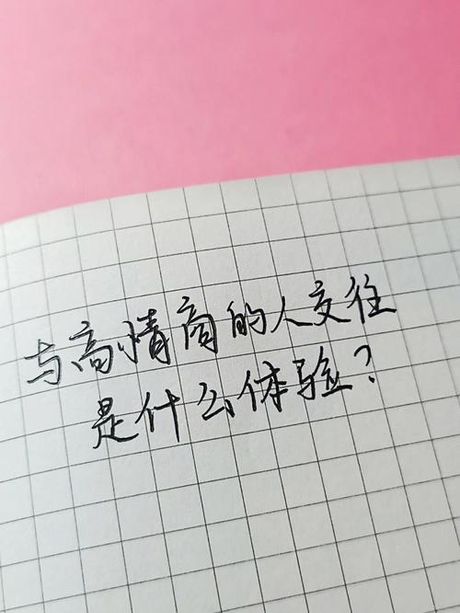 与高情商的人交往
是什么体验?